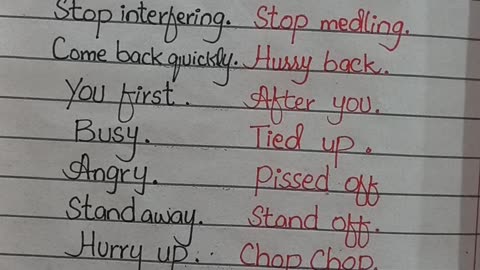 Stop interfering. Stop medling.
Come back quickly. Hussy back.
You first. After you.
Busy. Tied up.
Angry. Pissed off
Stand away. Stand off.
Hurry up.. Chop Chop.